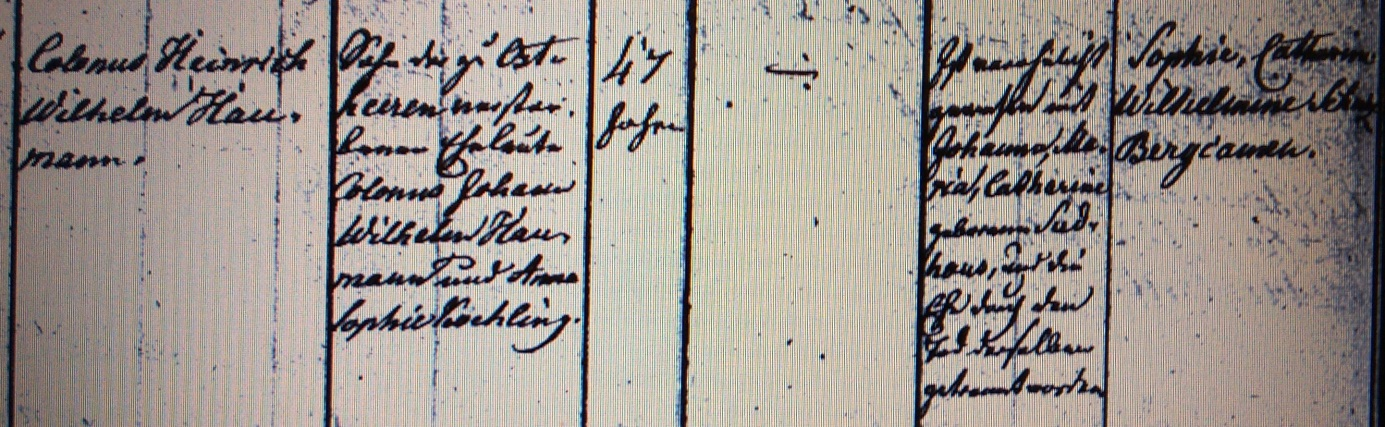 Colonus Heinrich
Wilhelm Hau-
mann.
Sohn der zu Oste
heeren verstor-
benen Eheleute
Colonus Johann
Wilhelm Hau-
mann und Anna
Sophie Köchling.
47
Jahre
Ist verehelicht
gewesen mit
Johanna Ma-
ria Catherine
geborenen Sud-
haus, und die
Ehe durch den
Tod derselben
getrennt worden
Sophie, Catharine
Wilhelmine